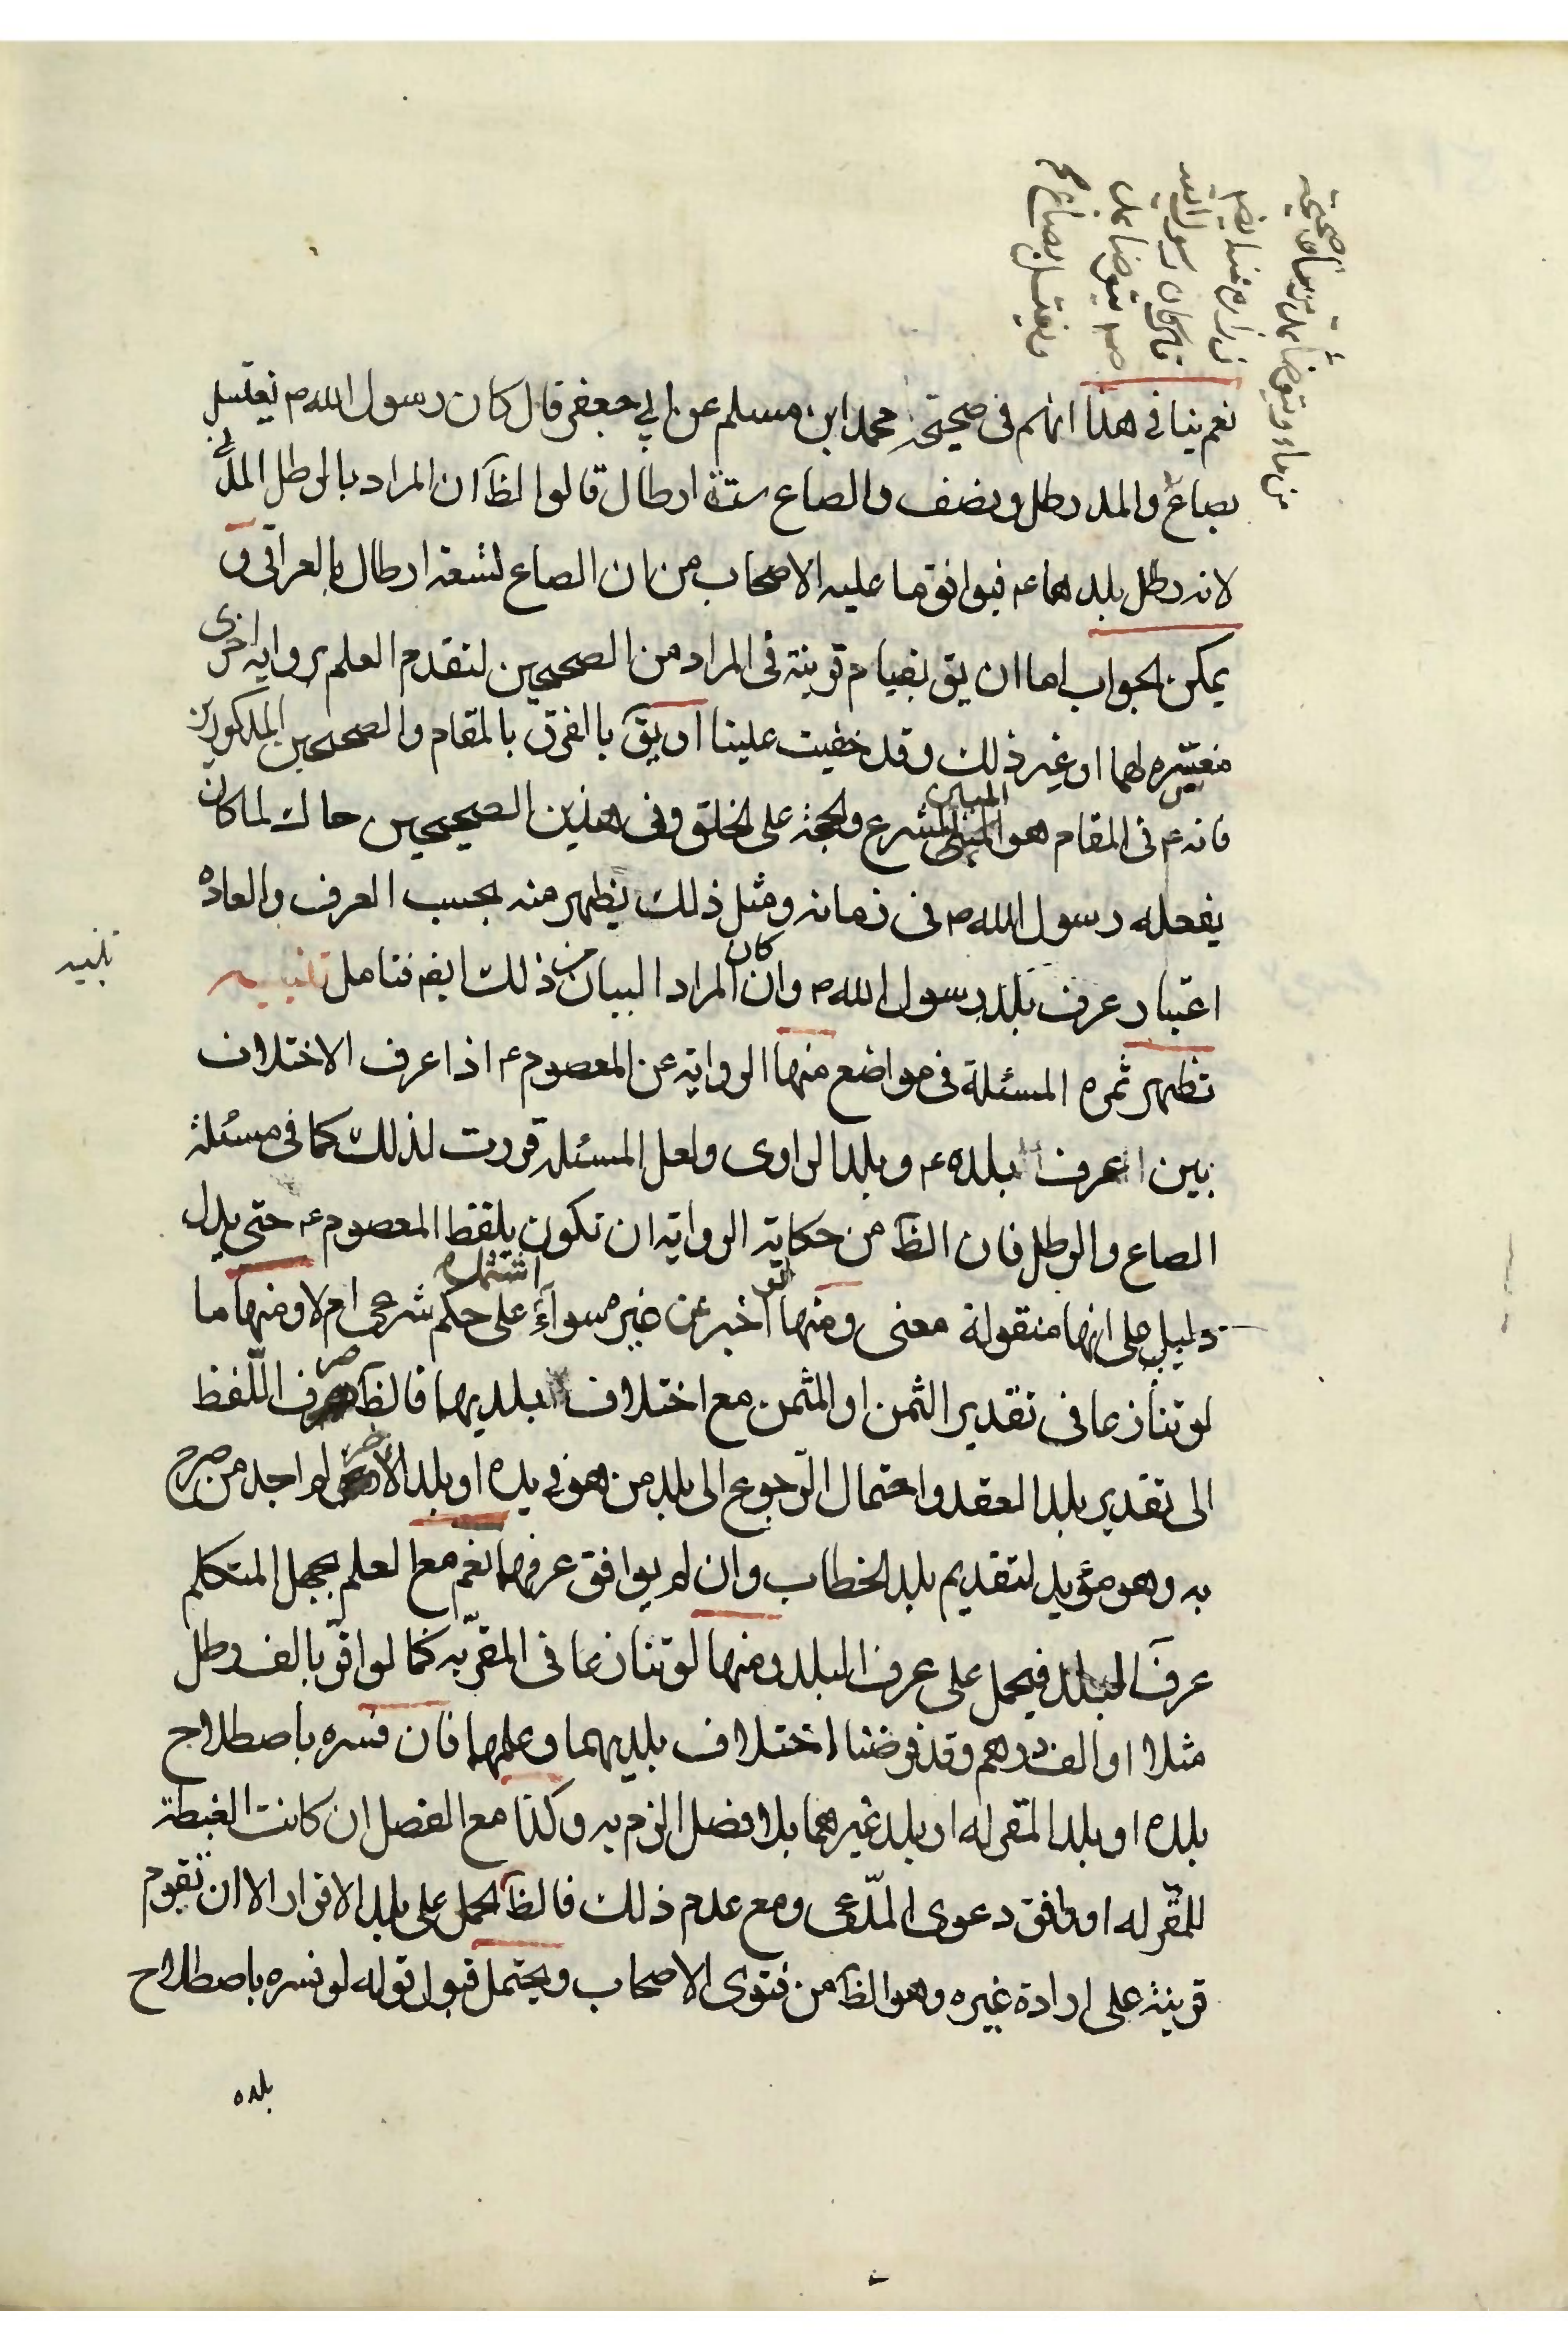 نعم ينافي هذا انهم في صحيحة محمد ابن مسلم عن ابي جعفر قال كان رسول الله ص يغتسل
بصاع والمد رطل ونصف والصاع ستة ارطال قالوا الظ ان المراد بالرطل المدني
لانه رطل بلدهما ع فيوافق ما عليه الاصحاب من ان الصاع تسعة ارطال بالعراقي و
يمكن الجواب اما ان يق بقيام قرينة في المراد من الصحيحين لتقدم العلم برواية اخرى
مفسره لهما او غير ذلك وقد خفيت علينا او يق بالفرق بالمقام والصحيحين المذكورين
فانه ع في المقام هو المبين للشرع والحجة على الخلق وفي هذين الصحيحين حاك لما كان
يفعله رسول الله ص في زمانه ومثل ذلك يظهر منه بحسب العرف والعاده
اعتبار عرف بلد رسول الله ص وان كان المراد البيان من ذلك ايض فتامل تنبيه
تظهر ثمره المسئلة في مواضع منها الرواية عن المعصوم ع اذا عرف الاختلاف
بين عرف بلده ع وبلد الراوى ولعل المسئلة قررت لذلك كما في مسئلة
الصاع والرطل فان الظ من حكاية الرواية ان تكون بلفظ المعصوم ع حتى يدل
دليل على انها منقولة معنى ومنها لو اخبر عن غيره سوآء اشتمل على حكم شرعى ام لا ومنها ما
لو تنازعا في تقدير الثمن او المثمن مع اختلاف بلديهما فالظ صرف اللّفظ
الى تقدير بلد العقد واحتمال الرّجوع الى بلد من هو في يده او بلد الاخر لم اجد من صرح
به وهو مؤيد لتقديم بلد الخطاب وان لم يوافق عرفهما نعم مع العلم بجهل المتكلم
عرف البلد فيحمل على عرف البلد ومنها لو تنازعا في المقرّبه كما لو اقرّ بالف رطل
مثلا او الف درهم وقد فرضنا اختلاف بلديهما وعلمهما فان فسره باصطلاح
بلده او بلد المقر له او بلد غيرهما بلا فصل الزم به وكذا مع الفصل ان كانت الغبطة
للمقر له او وافق دعوى المدّعى ومع عدم ذلك فالظ الحمل على بلد الاقرار الا ان تقوم
قرينة على ارادة غيره وهو الظ من فتوى الاصحاب ويحتمل قبول قوله لو فسره باصطلاح
بلده
تنبيه
زرارة
قال كان رسول الله
ص يتوضا بمد
ويغتسل بصاع